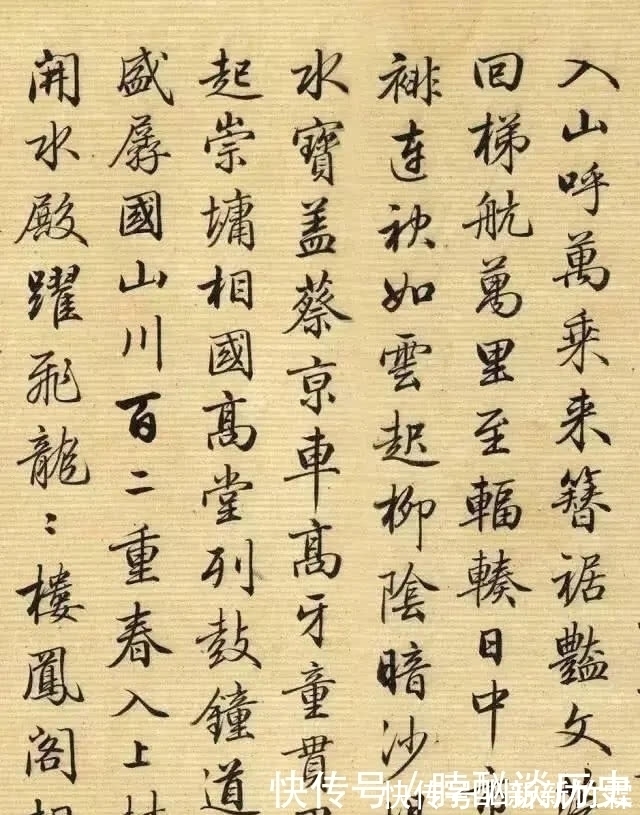 入山呼萬乘来簪裾豔文
回梯航萬里至輻輳日中
連袂如雲起柳陰暗沙
水寶蓋蔡京車高牙童貫
起崇墉相國高堂列鼓鐘道
盛孱國山川百二重春入上
開水殿躍飛龍〻樓鳳閣
快传号/